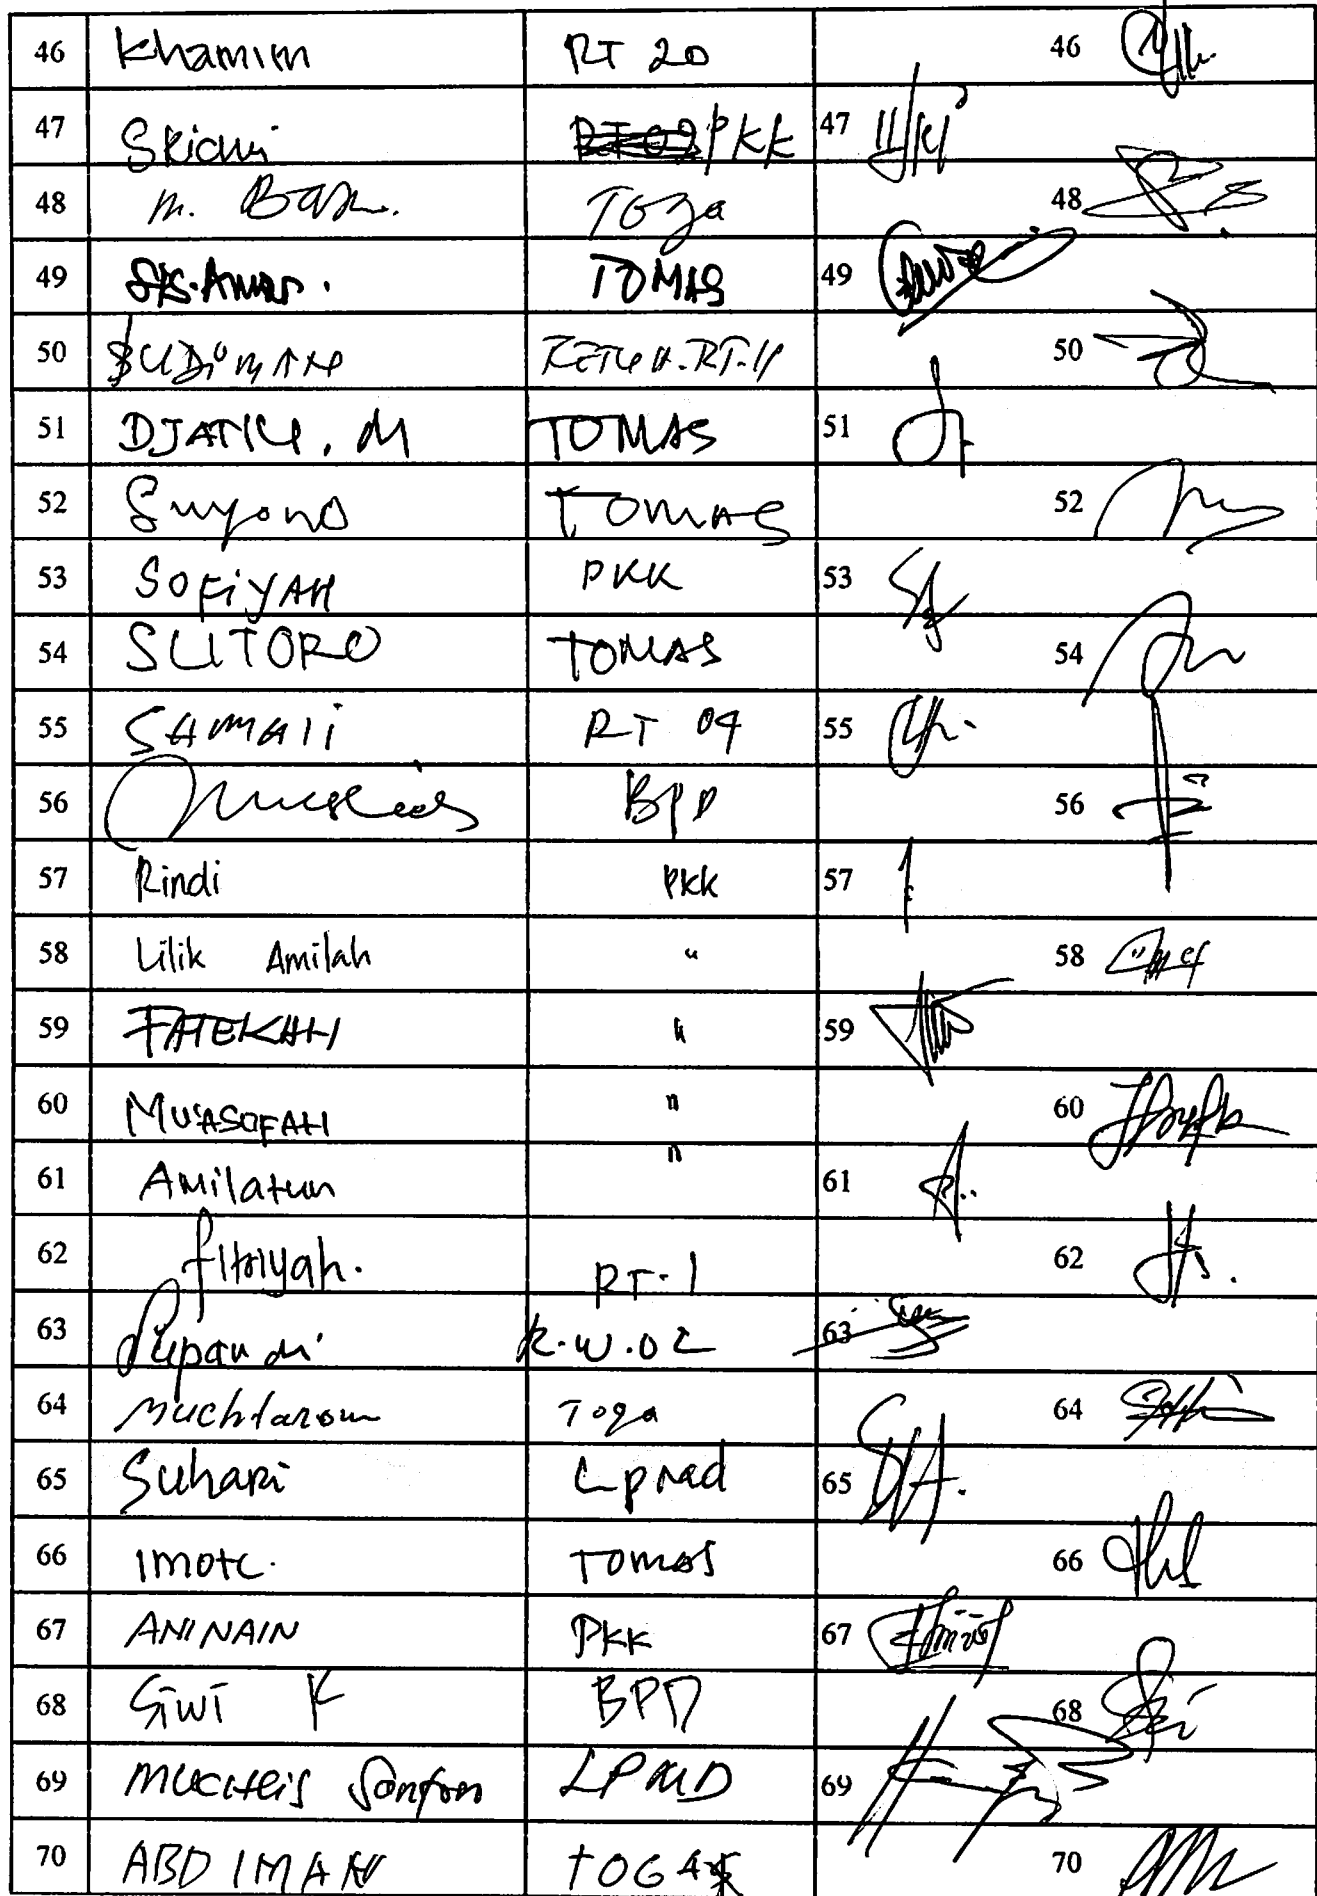 46 Khamim RT 20 46
47 Skichi PKK 47
48 M. Toga 48
49 TOMAS 49
50 BUDIMAN KETUA.RT.11 50
51 DJATIU. M TOMAS 51
52 Suyono TOMAS 52
53 SOFIYAH PKK 53
54 SUTORO TOMAS 54
55 SAMALI RT 04 55
56 BPD 56
57 Rindi PKK 57
58 Lilik Amilah " 58
59 FATEKAH " 59
60 MU'ASOFAH " 60
61 Amilatun " 61
62 fitriyah. RT.1 62
63 Supandi R.W.02 63
64 Muchtarom Toga 64
65 Suhari Lpmd 65
66 TOMAS 66
67 ANINAIN PKK 67
68 Siwi K BPD 68
69 LPMD 69
70 ABD IMAN TOGA 70